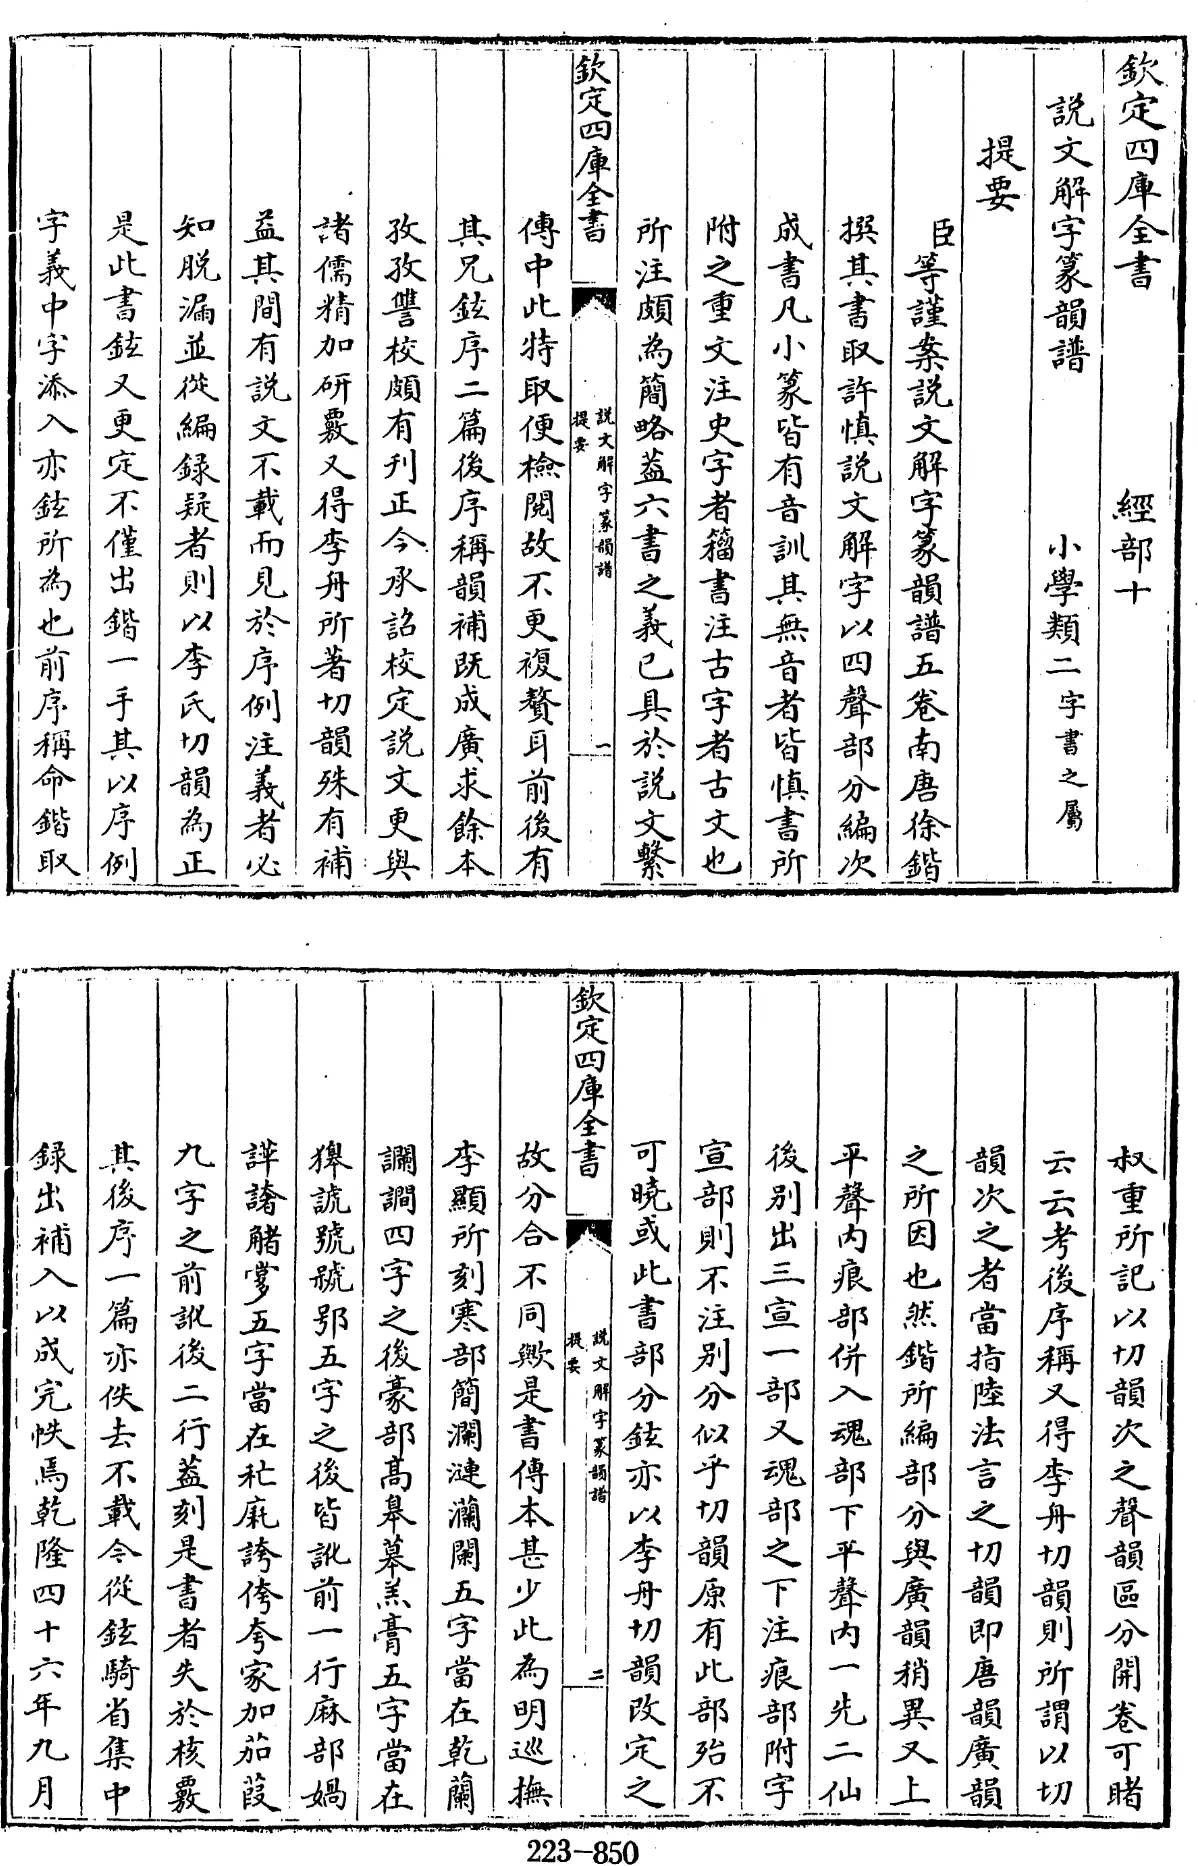 欽定四庫全書　經部十
説文解字篆韻譜　小學類二字書之屬
提要
臣等謹案説文解字篆韻譜五卷南唐徐鍇
撰其書取許慎説文解字以四聲部分編次
成書凡小篆皆有音訓其無音者皆慎書所
附之重文注史字者籀書注古字者古文也
所注頗為簡略葢六書之義已具於説文繫
欽定四庫全書
説文解字篆韻譜
提要
一
傳中此特取便檢閲故不更複贅耳前後有
其兄鉉序二篇後序稱韻補既成廣求餘本
孜孜讐校頗有刋正今承詔校定説文更與
諸儒精加研覈又得李舟所著切韻殊有補
益其間有説文不載而見於序例注義者必
知脱漏並從編録疑者則以李氏切韻為正
是此書鉉又更定不僅出鍇一手其以序例
字義中字添入亦鉉所為也前序稱命鍇取
叔重所記以切韻次之聲韻區分開卷可睹
云云考後序稱又得李舟切韻則所謂以切
韻次之者當指陸法言之切韻即唐韻廣韻
之所因也然鍇所編部分與廣韻稍異又上
平聲内痕部併入魂部下平聲内一先二仙
後别出三宣一部又魂部之下注痕部附字
宣部則不注别分似乎切韻原有此部殆不
可曉或此書部分鉉亦以李舟切韻改定之
欽定四庫全書
説文解字篆韻譜
提要
二
故分合不同歟是書傳本甚少此為明巡撫
李顯所刻寒部簡瀾漣灡闌五字當在乾蘭
讕調四字之後豪部髙皋羔膏五字當在
獆諕號鄂五字之後皆訛前一行麻部媧
譁譇觰奓五字當在秅㡯誇侉夸家加茄葭
九字之前訛後二行葢刻是書者失於核覈
其後序一篇亦佚去不載今從鉉騎省集中
録出補入以成完帙焉乾隆四十六年九月
223-850